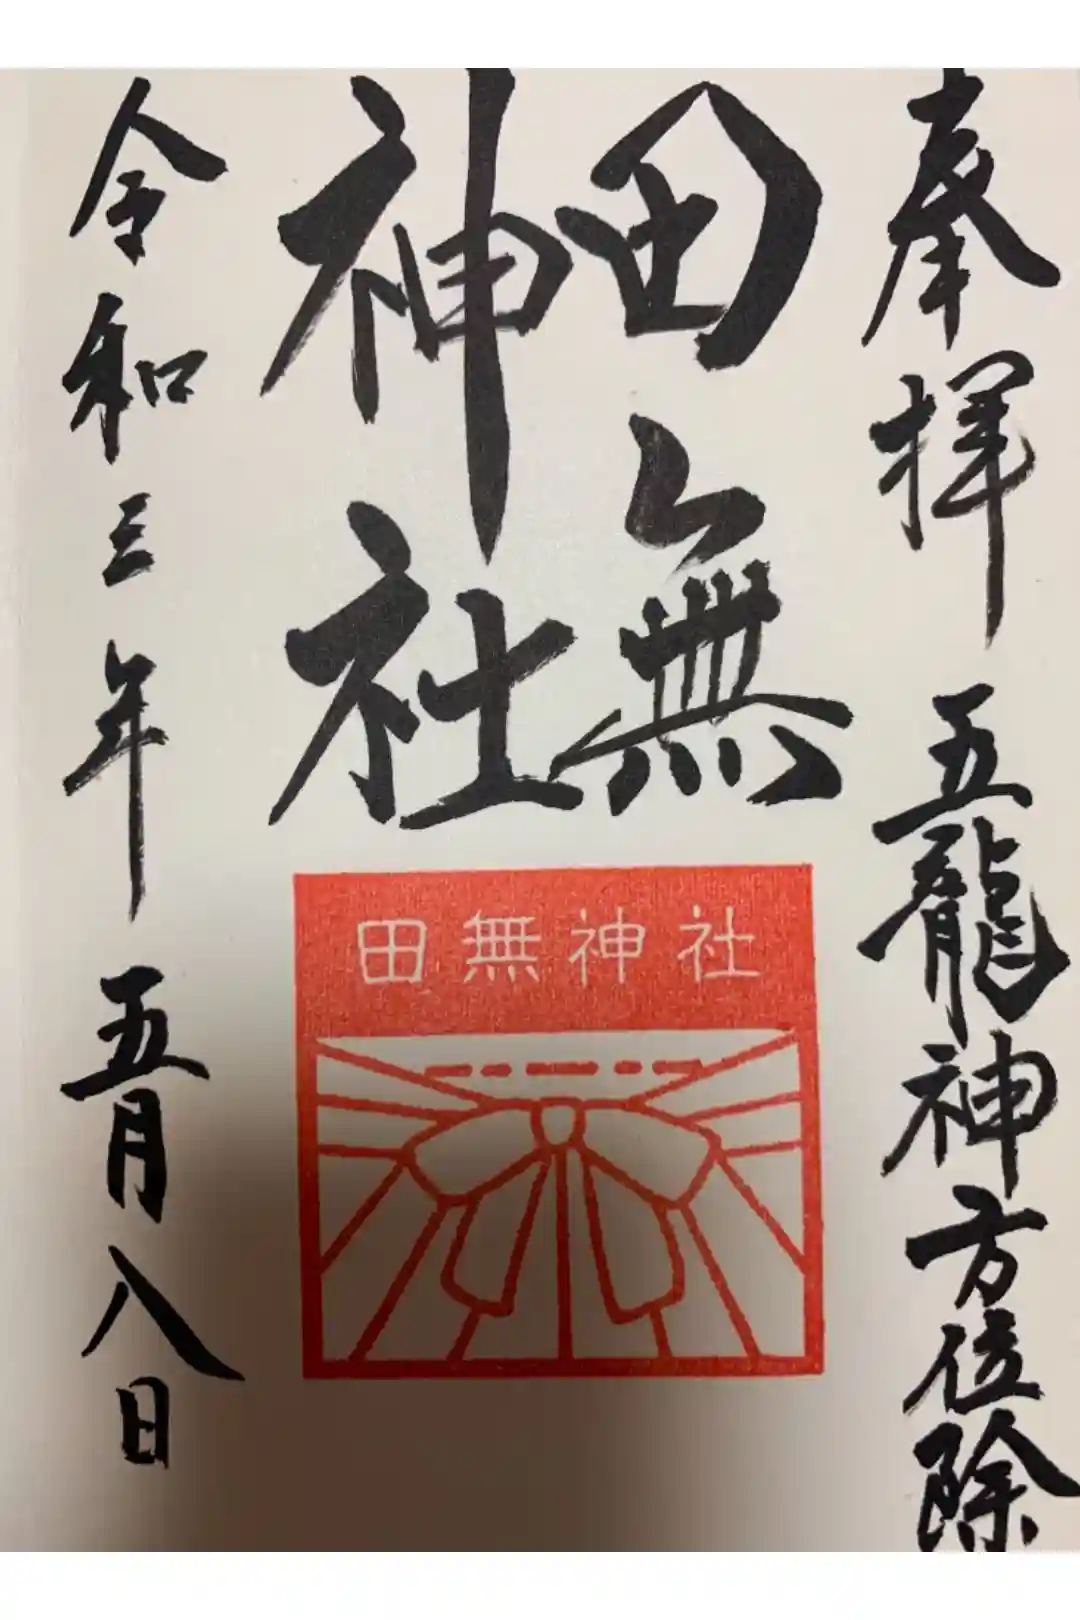 奉拝 五龍神方位除
田無
神社
田無神社
令和三年 五月八日